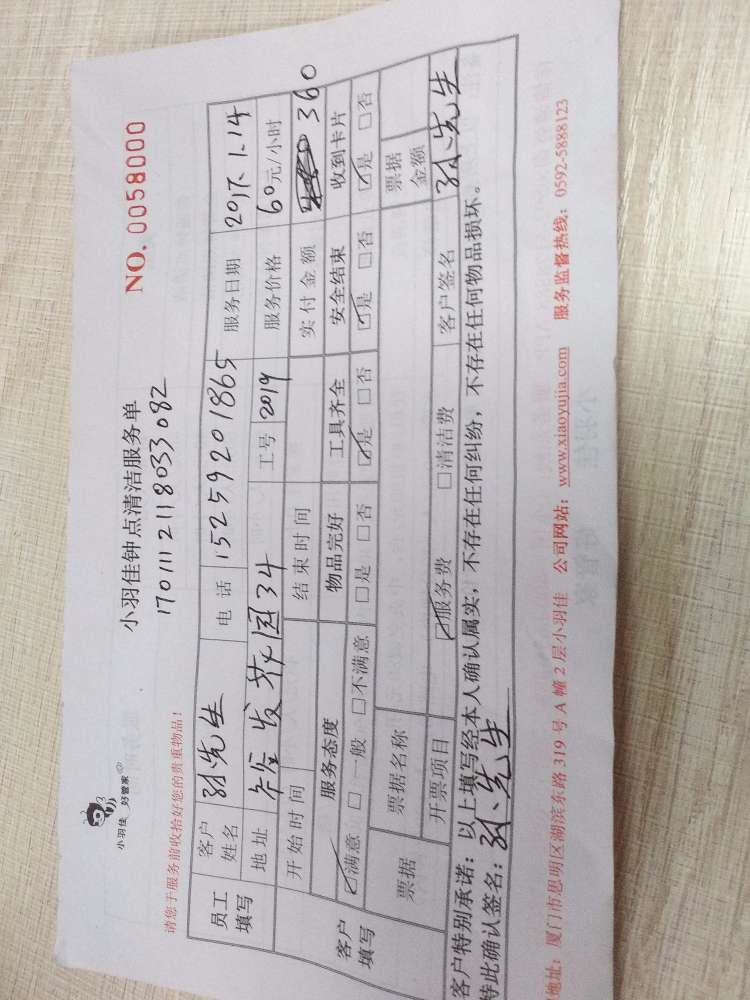 小羽佳 好管家
小羽佳钟点清洁服务单
NO. 0058000
1701112118033082
请您于服务前收拾好您的贵重物品!
员工填写
客户姓名 孙先生 电话 15259201865 服务日期 2017.1.14
地址 发花园34 工号 2019 服务价格 60元/小时
开始时间 结束时间 实付金额 360
客户填写
服务态度 物品完好 工具齐全 安全结束 收到卡片
☑满意 □一般 □不满意 □是 □否 ☑是 □否 ☑是 □否 ☑是 □否
票据 票据名称 票据金额
开票项目 ☑服务费 □清洁费 客户签名 孙先生
客户特别承诺:以上填写经本人确认属实,不存在任何纠纷,不存在任何物品损坏。
特此确认签名:孙先生
地址:厦门市思明区湖滨东路 319 号 A 幢 2 层小羽佳 公司网站:www.xiaoyujia.com 服务监督热线:0592-5888123